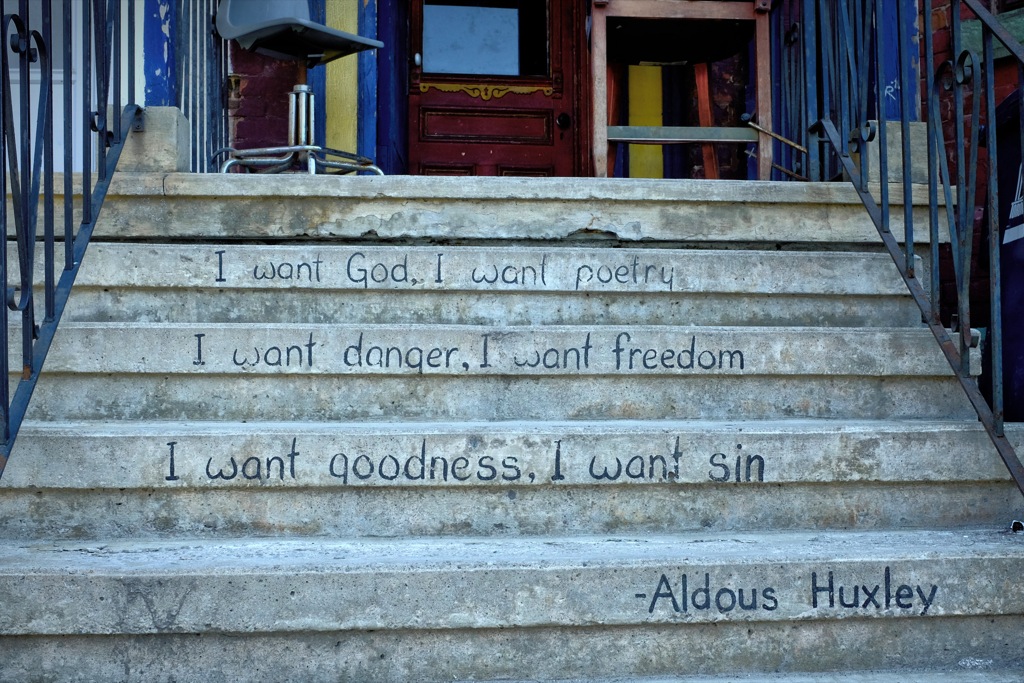 I want God, I want poetry
I want danger, I want freedom
I want goodness, I want sin
-Aldous Huxley